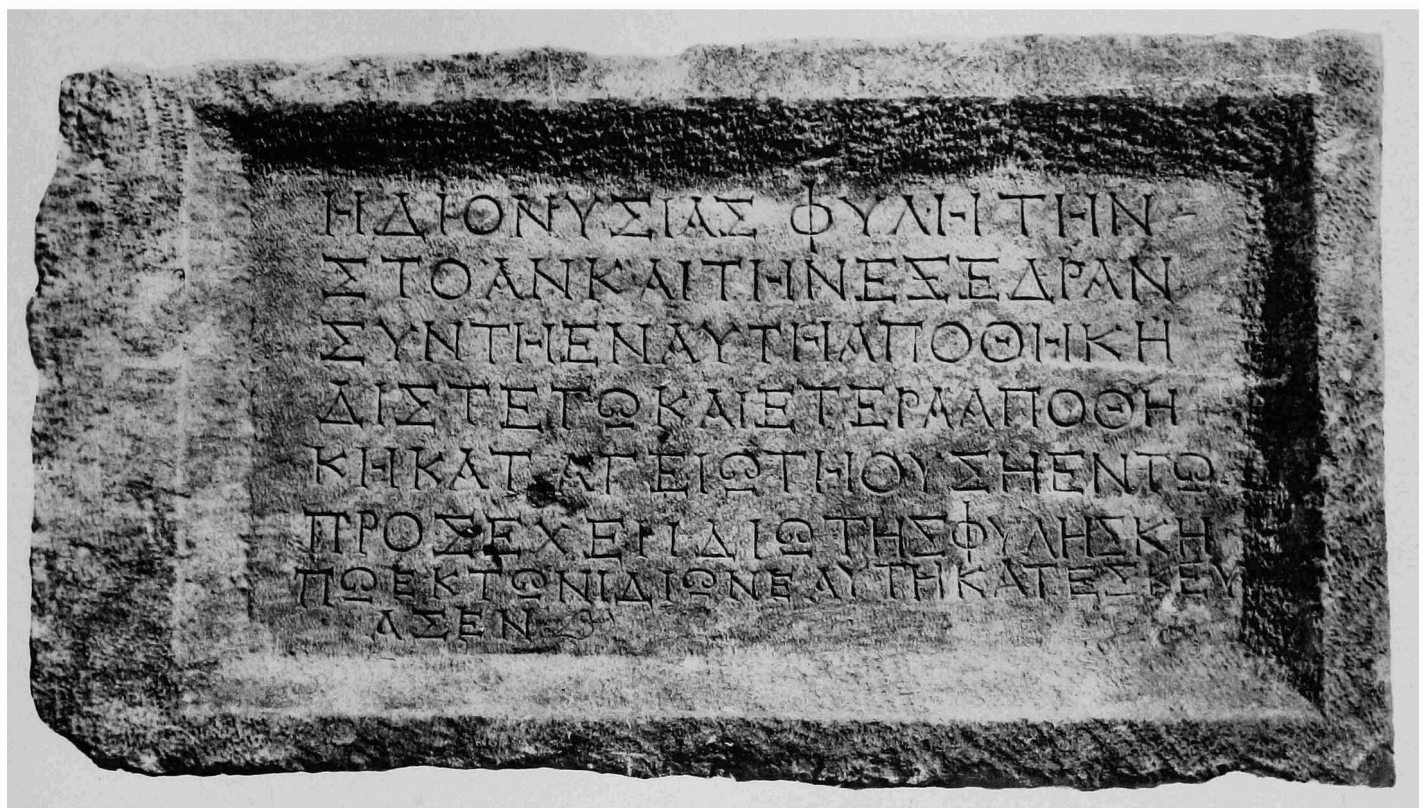 Η ΔΙΟΝΥΣΙΑΣ ΦΥΛΗ ΤΗΝ
ΣΤΟΑΝ ΚΑΙ ΤΗΝ ΕΞΕΔΡΑΝ
ΣΥΝ ΤΗ ΕΝ ΑΥΤΗ ΑΠΟΘΗΚΗ
ΔΙΣΤΕΓΩ ΚΑΙ ΕΤΕΡΑ ΑΠΟΘΗ
ΚΗ ΚΑΤΑΓΕΙΩ ΤΗ ΟΥΣΗ ΕΝ ΤΩ
ΠΡΟΣΕΧΕΙ ΙΔΙΩ ΤΗΣ ΦΥΛΗΣ ΚΗ
ΠΩ ΕΚ ΤΩΝ ΙΔΙΩΝ ΕΑΥΤΗ ΚΑΤΕΣΚΕΥ
ΑΣΕΝ